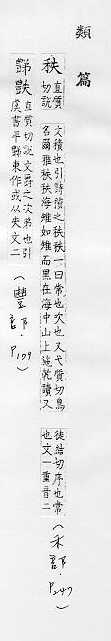 類篇
秩
直質切說
文積也引詩積之秩秩一曰常也次也又弋質切鳥
名爾雅秩秩海雉如雉而黑在海中山上徒結切序也常
也文一重音二
(禾部.P247)
豑𧯷
直質切說文爵之次弟也引
虞書平豑東作或从失文二
(豐部.P179)